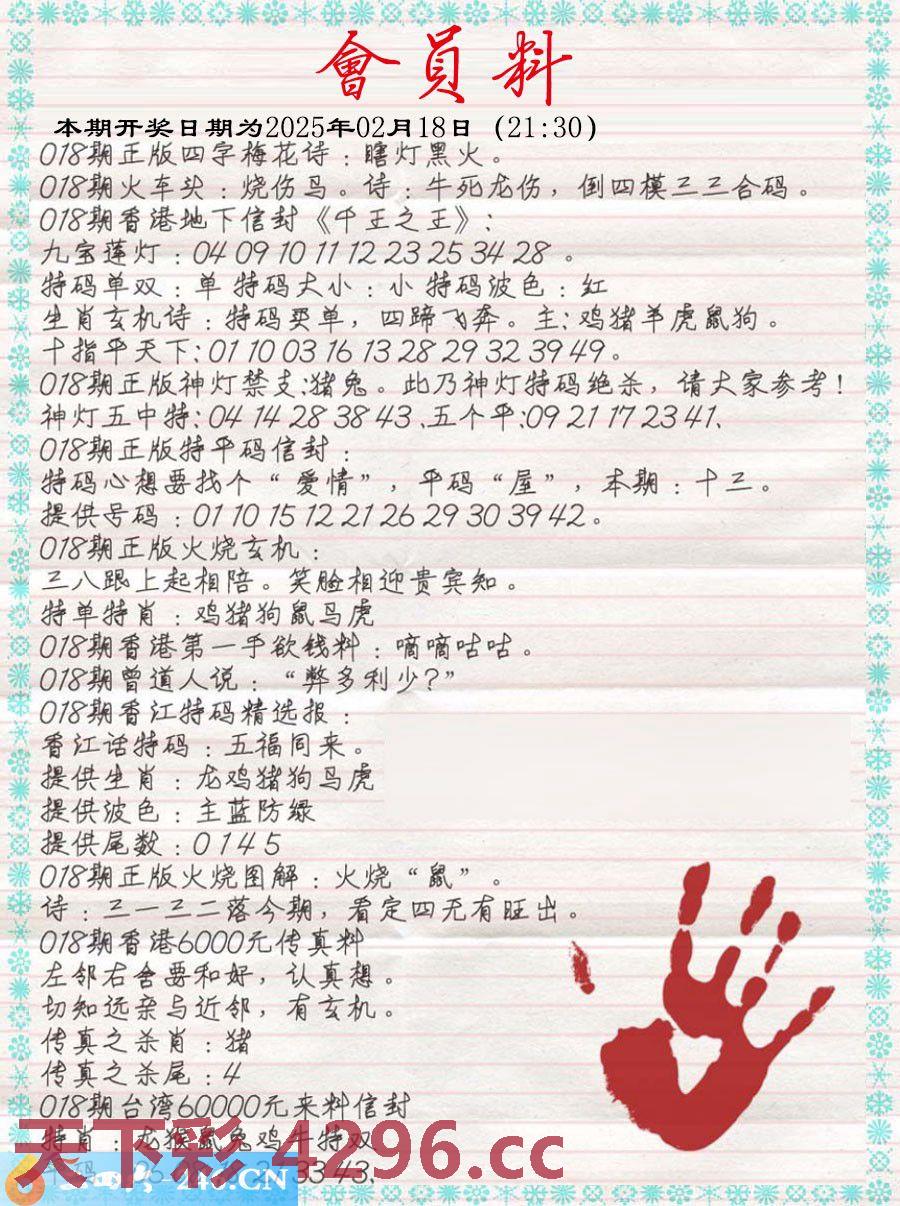 會員料
本期开奖日期为2025年02月18日（21:30）
018期正版四字梅花诗：瞎灯黑火。
018期火车头：烧伤鸟。诗：牛死龙伤，倒四模三三合码。
018期香港地下信封《千王之王》：
九宝莲灯：04 09 10 11 12 23 25 34 28 。
特码单双：单 特码大小：小 特码波色：红
生肖玄机诗：特码买单，四蹄飞奔。主：鸡猪羊虎鼠狗。
十指平天下：01 10 03 16 13 28 29 32 39 49。
018期正版神灯禁支：猪兔。此乃神灯特码绝杀，请大家参考！
神灯五中特：04 14 28 38 43 、五个平：09 21 17 23 41、
018期正版特平码信封：
特码心想要找个“爱情”，平码“屋”，本期：十三。
提供号码：01 10 15 12 21 26 29 30 39 42。
018期正版火烧玄机：
三八跟上起相陪。笑脸相迎贵宾知。
特单特肖：鸡猪狗鼠马虎
018期香港第一手欲钱料：嘀嘀咕咕。
018期曾道人说：“弊多利少？”
018期香江特码精选报：
香江话特码：五福同来。
提供生肖：龙鸡猪狗马虎
提供波色：主蓝防绿
提供尾数：0 1 4 5
018期正版火烧图解：火烧“鼠”。
诗：三一三二落今期，看定四无有旺出。
018期香港6000元传真料
左邻右舍要和好，认真想。
切知远亲与近邻，有玄机。
传真之杀肖：猪
传真之杀尾：4
018期台湾60000元来料信封
特肖：龙猴鼠兔鸡牛特双
天下彩 4296.cc
33 43、
246.CN